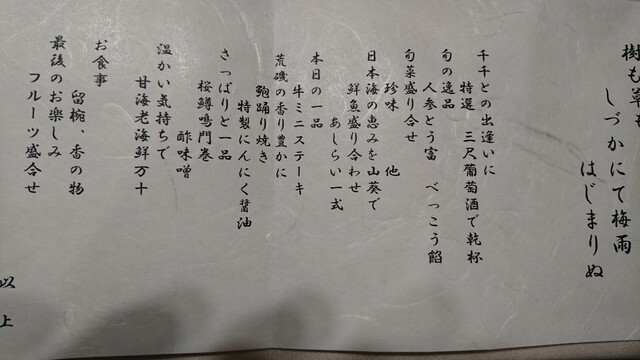 樹も草も
しづかにて梅雨
はじまりぬ
千千との出逢いに
特選 三尺葡萄酒で乾杯
旬の逸品
人参とう富 べっこう餡
旬菜盛り合せ
珍味 他
日本海の恵みを山葵で
鮮魚盛り合わせ
あしらい一式
本日の一品
牛ミニステーキ
荒磯の香り豊かに
鮑踊り焼き
特製にんにく醤油
さっぱりと一品
桜鱒鳴門巻
酢味噌
温かい気持ちで
甘海老海鮮万十
お食事
留椀、香の物
最後のお楽しみ
フルーツ盛合せ
以上